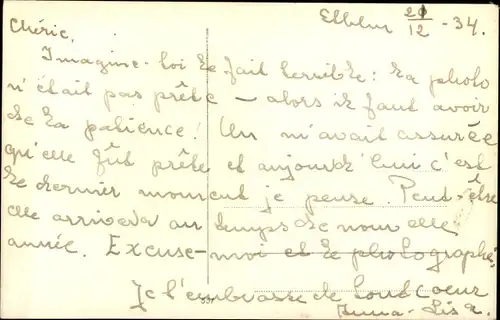 21/12 - 34.
Chérie,
Imagine-toi le fait terrible: la photo
n'était pas prête — alors il faut avoir
de la patience! On m'avait assurée
qu'elle fût prête et aujourd'hui c'est
le dernier moment je pense. Peut-être
elle arrivera au temps de nouvelle
année. Excuse-moi et le photographe,
Je t'embrasse de tout coeur